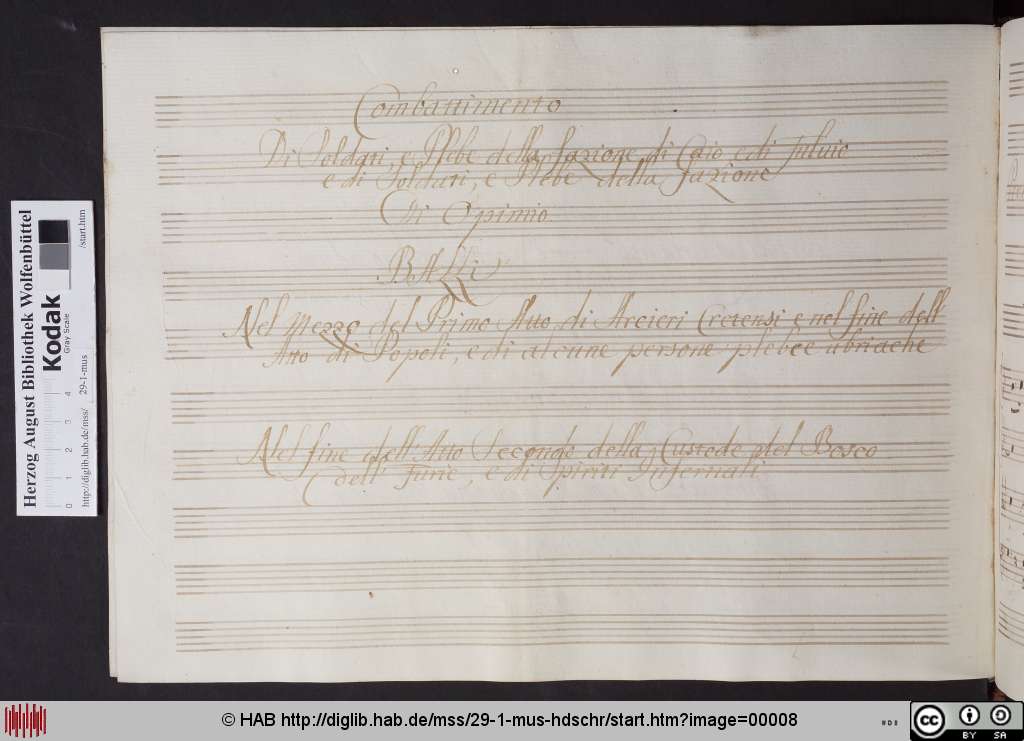 Combattimento
Di Soldati, e Plebe della fazione di Caio e di Fulvio
e di Soldati, e Plebe della fazione
Di Opimio
Balli
Nel Mezzo del Primo Atto di Arcieri Cretensi e nel fine dell
Atto di Popoli, e di alcune persone plebee ubriache
Nel fine dell Atto Secondo della Custode del Bosco
dell Furie, e di Spiriti Infernali
Herzog August Bibliothek Wolfenbüttel
Kodak
Gray Scale
0 1 2 3 4
http://diglib.hab.de/mss/ 29-1-mus /start.htm
© HAB http://diglib.hab.de/mss/29-1-mus-hdschr/start.htm?image=00008
cc BY SA